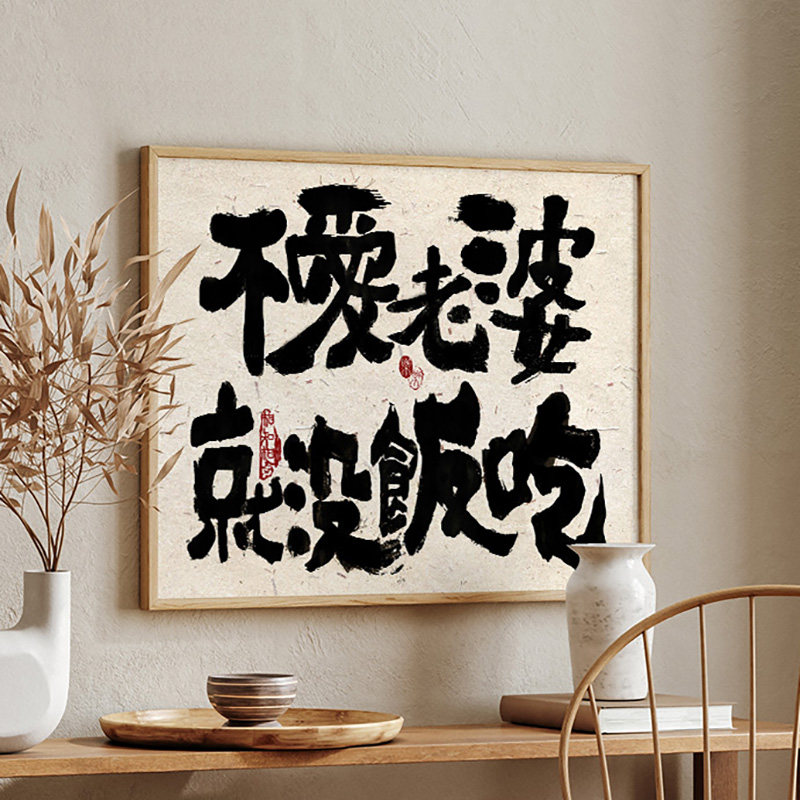 不愛老婆
就没飯吃